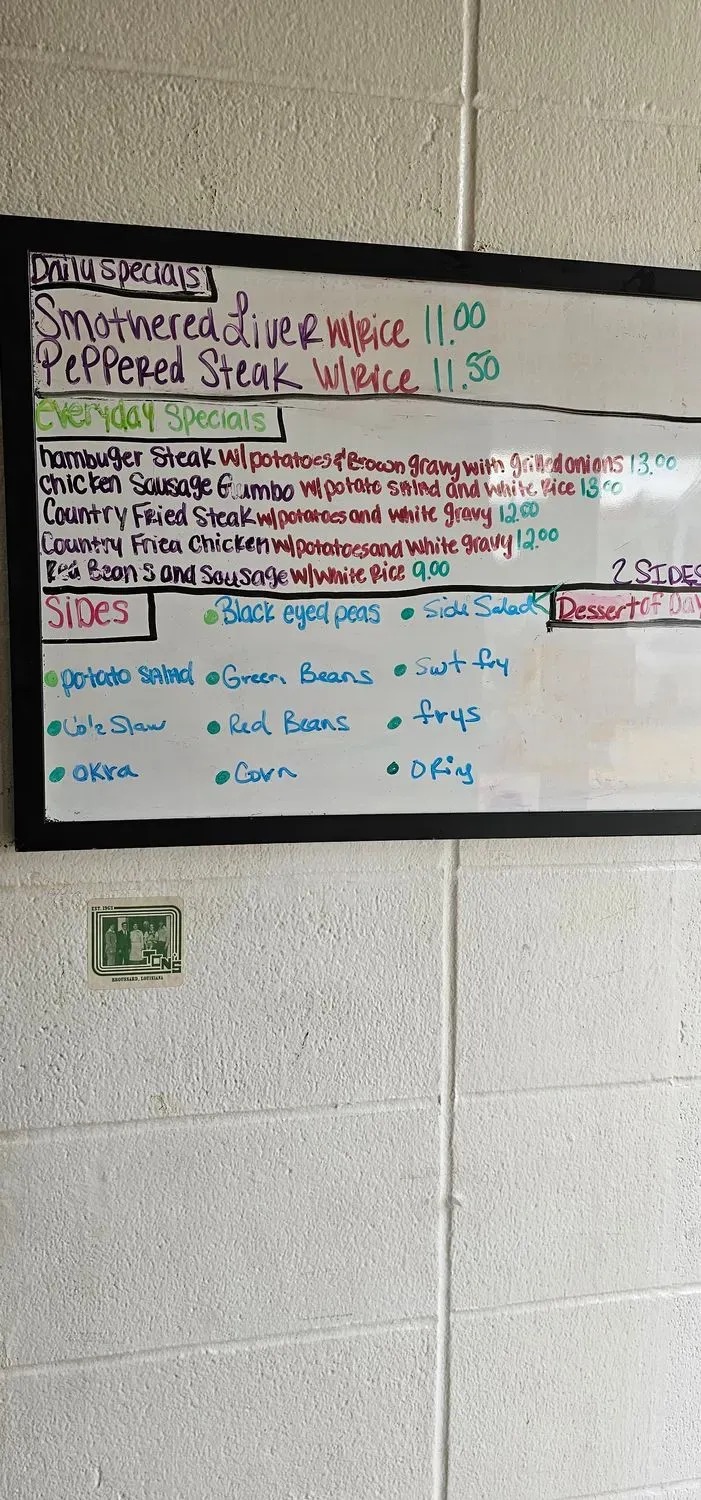 Daily Specials
Smothered Liver w/Rice 11.00
Peppered Steak w/Rice 11.50
everyday specials
hambuger Steak w/potatoes & Brown gravy with grilled onions 13.00
chicken Sausage Gumbo w/potato salad and white Rice 13.00
Country Fried Steak w/potatoes and white gravy 12.00
Country Fried Chicken w/potatoes and white gravy 12.00
Red Beans and Sausage w/white Rice 9.00
2 SIDES
Sides
Black eyed peas
Side Salad
Dessert of Day
potato salad
Green Beans
Swt fry
Cole Slaw
Red Beans
frys
Okra
Corn
O Ring
EST. 1963
TON'S
BROUSSARD, LOUISIANA